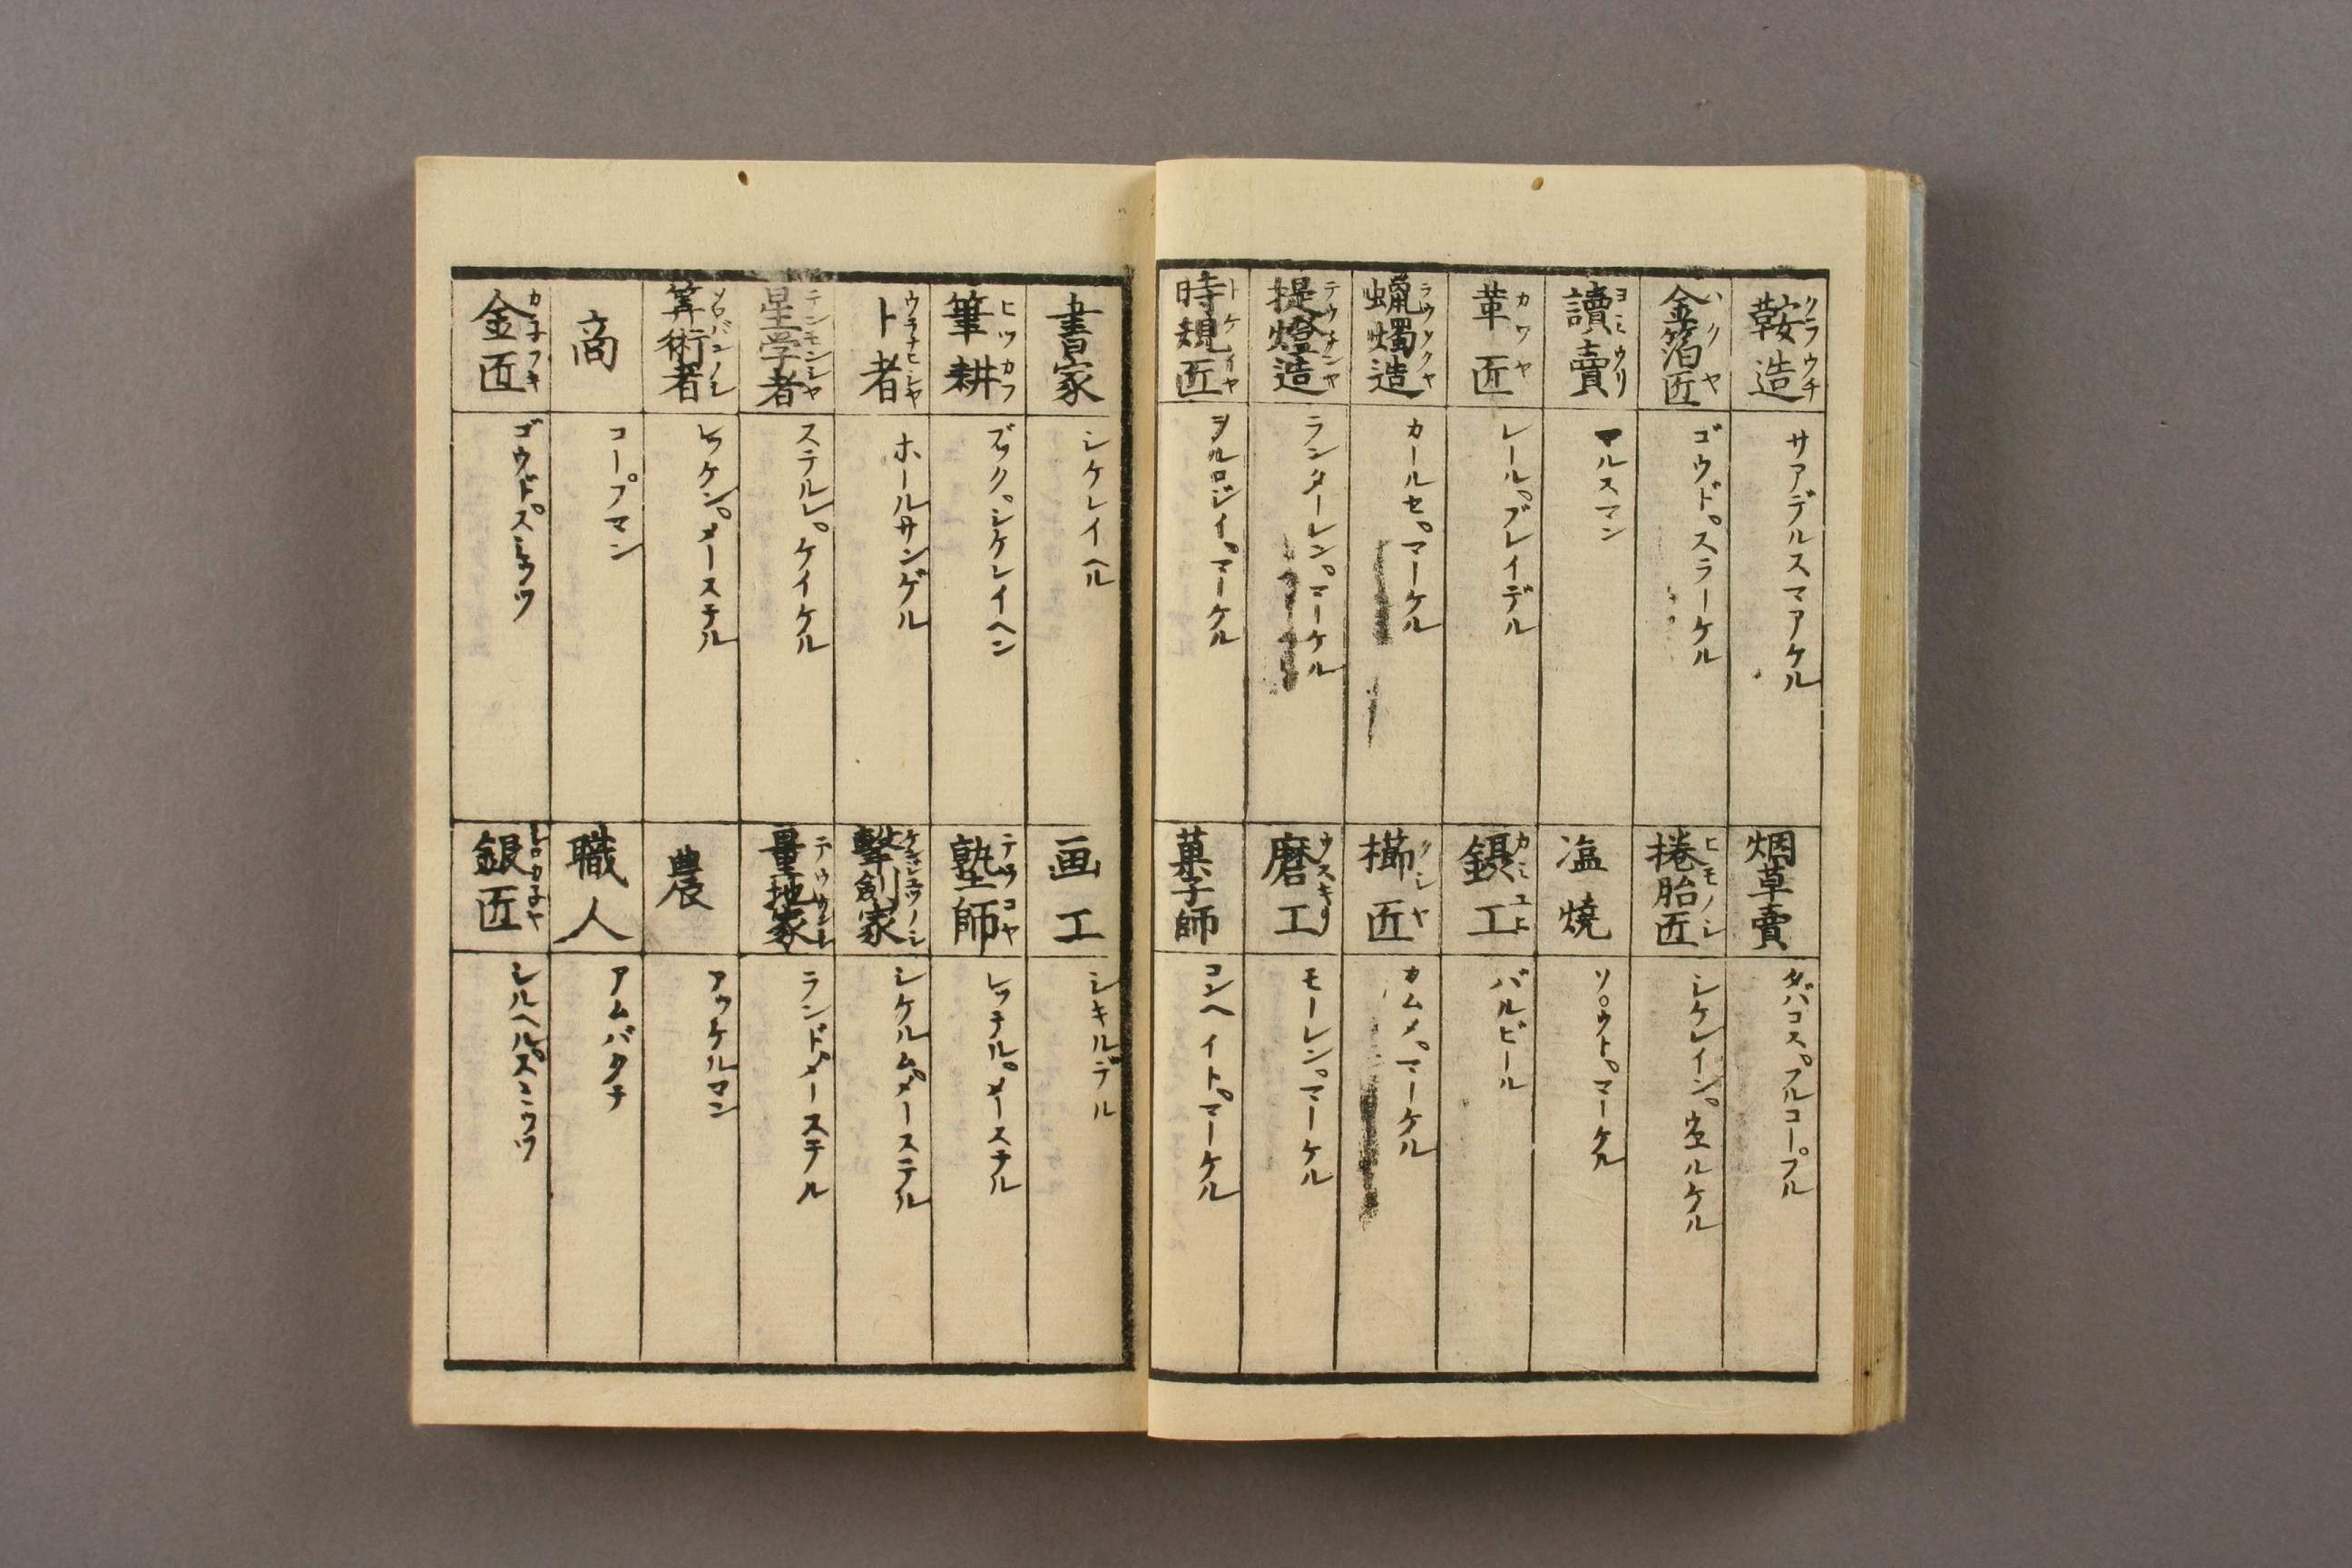 鞍造 クラウチ
サアデルスマアケル
金箔匠 ハクヤ
ゴウド。スラーケル
讀賣 ヨミウリ
マルスマン
革匠 カワヤ
レール。ブレイデル
蝋燭造 ラウソクヤ
カールセ。マーケル
提燈造 テウチンヤ
ランターレン。マーケル
時規匠 トケイヤ
ヲルロジイ。マーケル
烟草賣
タバコス。フルコープル
捲胎匠 ヒモノシ
シケレイン。ウエルケル
塩焼
ソ。ウト。マーケル
鑷工 カミユヒ
バルビール
櫛匠 クシヤ
カムメ。マーケル
磨工 ウスキリ
モーレン。マーケル
菓子師
コンヘイト。マーケル
書家
シケレイヘル
筆耕 ヒツカフ
ブック。シケレイヘン
卜者 ウラナヒシヤ
ホールサンゲル
星学者 テンモンシヤ
ステルレ。ケイケル
筭術者 ソロバンノシ
レッケン。メーステル
商
コープマン
金匠 カ子フキ
ゴウド。スミウツ
画工
シキルデル
塾師 テツコヤ
レッテル。メーステル
撃劍家 ケンジユツノシ
シケルム。メーステル
量地家
ランドメーステル
農
アッケルマン
職人
アムバクチ
銀匠 シロカ子ヤ
シルヘル。スミウツ